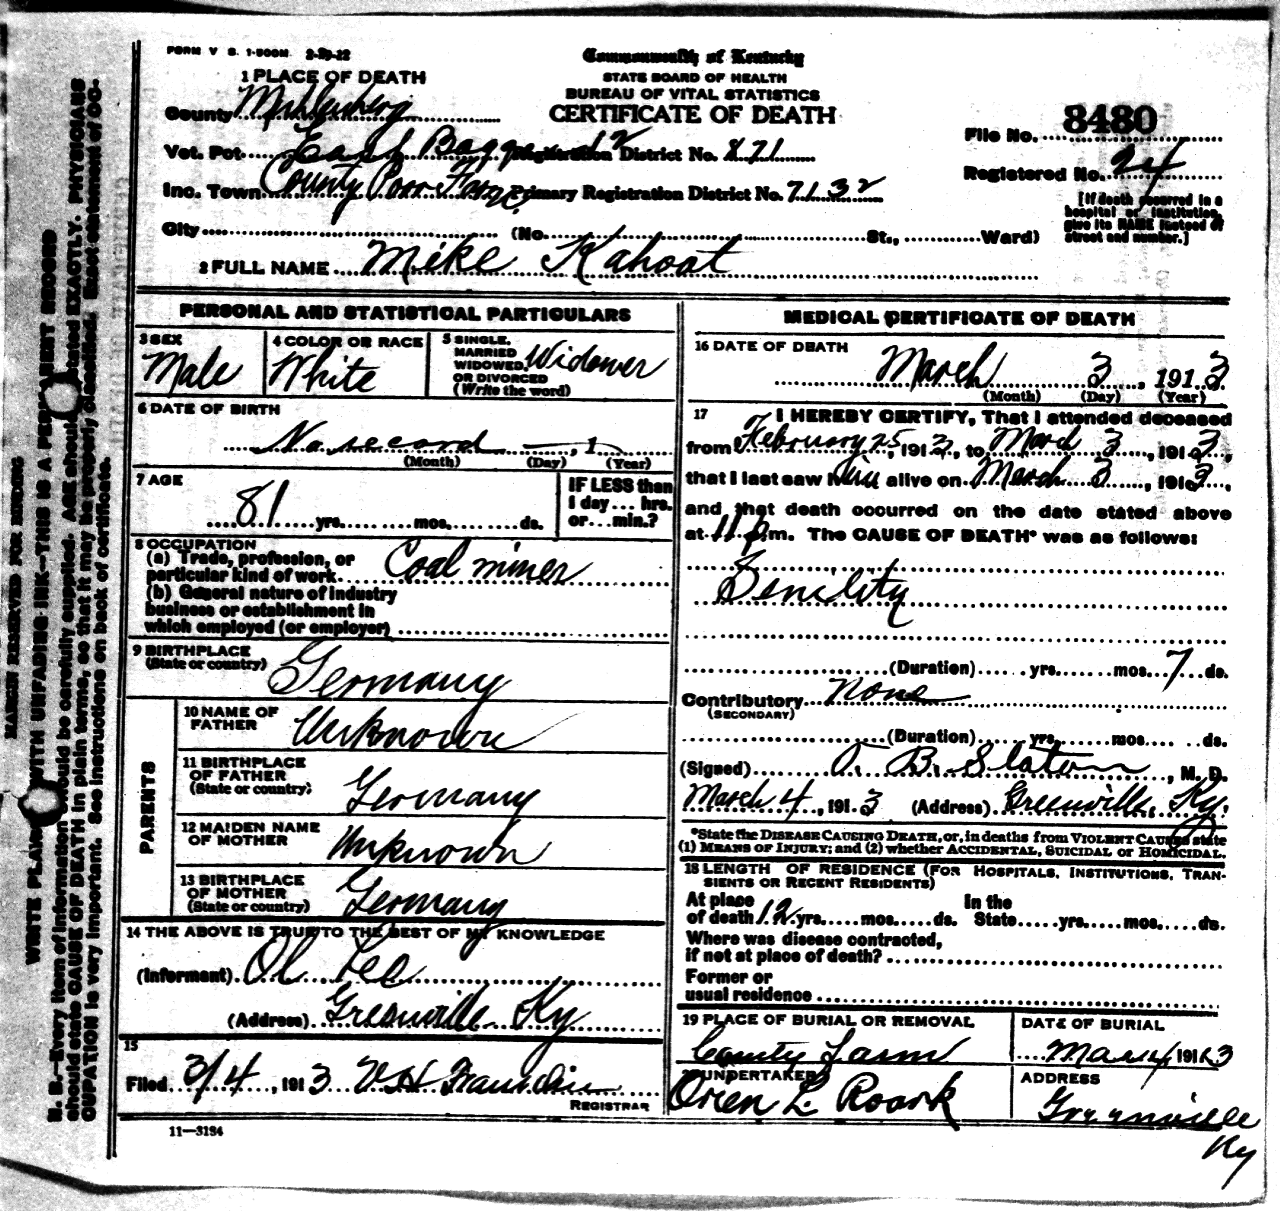 FORM V S. 1-500M 2-29-12
Commonwealth of Kentucky
STATE BOARD OF HEALTH
BUREAU OF VITAL STATISTICS
CERTIFICATE OF DEATH
1 PLACE OF DEATH
County Muhlenberg
File No. 8480
Vot. Pct. East Registration District No. 871
Registered No. 24
Inc. Town County Poor Farm Primary Registration District No. 7132
[If death occurred in a
hospital or institution,
give its NAME instead of
street and number.]
City (No. St., Ward)
2 FULL NAME Mike Kahoat
PERSONAL AND STATISTICAL PARTICULARS
3 SEX
Male
4 COLOR OR RACE
White
5 SINGLE,
MARRIED
WIDOWED,
OR DIVORCED
(Write the word)
Widower
6 DATE OF BIRTH
No record , 1
(Month) (Day) (Year)
7 AGE
81 yrs. mos. ds.
IF LESS than
1 day ... hrs.
or ... min.?
8 OCCUPATION
(a) Trade, profession, or
particular kind of work Coal miner
(b) General nature of industry
business or establishment in
which employed (or employer)
9 BIRTHPLACE
(State or country)
Germany
PARENTS
10 NAME OF
FATHER
Unknown
11 BIRTHPLACE
OF FATHER
(State or country)
Germany
12 MAIDEN NAME
OF MOTHER
Unknown
13 BIRTHPLACE
OF MOTHER
(State or country)
Germany
14 THE ABOVE IS TRUE TO THE BEST OF MY KNOWLEDGE
(Informant) Ol Lee
(Address) Greenville Ky
15
Filed 3/4, 1913 V H Franklin
REGISTRAR
11-3184
MEDICAL CERTIFICATE OF DEATH
16 DATE OF DEATH
March 3, 1913
(Month) (Day) (Year)
17 I HEREBY CERTIFY, That I attended deceased
from February 25, 1913, to March 3, 1913,
that I last saw him alive on March 3, 1913,
and that death occurred on the date stated above
at 11 p.m. The CAUSE OF DEATH* was as follows:
Senility
(Duration) yrs. mos. 7 ds.
Contributory None
(SECONDARY)
(Duration) yrs. mos. ds.
(Signed) T. B. Slaton, M. D.
March 4, 1913 (Address) Greenville, Ky.
*State the DISEASE CAUSING DEATH, or, in deaths from VIOLENT CAUSES state
(1) MEANS OF INJURY; and (2) whether ACCIDENTAL, SUICIDAL or HOMICIDAL.
18 LENGTH OF RESIDENCE (FOR HOSPITALS, INSTITUTIONS, TRAN-
SIENTS OR RECENT RESIDENTS)
At place In the
of death 12 yrs. mos. ds. State yrs. mos. ds.
Where was disease contracted,
if not at place of death?
Former or
usual residence
19 PLACE OF BURIAL OR REMOVAL
County Farm
DATE OF BURIAL
Mar 4 1913
20 UNDERTAKER
Oren L. Roark
ADDRESS
Greenville
Ky
MARGIN RESERVED FOR BINDING
WRITE PLAINLY WITH UNFADING INK—THIS IS A PERMANENT RECORD
N. B.—Every item of information should be carefully supplied. AGE should be stated EXACTLY. PHYSICIANS
should state CAUSE OF DEATH in plain terms, so that it may be properly classified. Exact statement of OC-
CUPATION is very important. See instructions on back of certificate.